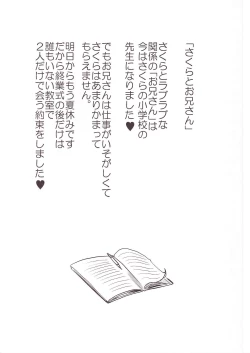 「さくらとお兄さん」
さくらとラブラブな
関係の「お兄さん」は
今はさくらの小学校の
先生になりました♥
でもお兄さんは仕事がいそがしくて
さくらはあまりかまって
もらえません。
明日からもう夏休みです
だから終業式の後だけは
誰もいない教室で
2人だけで会う約束をしました♥